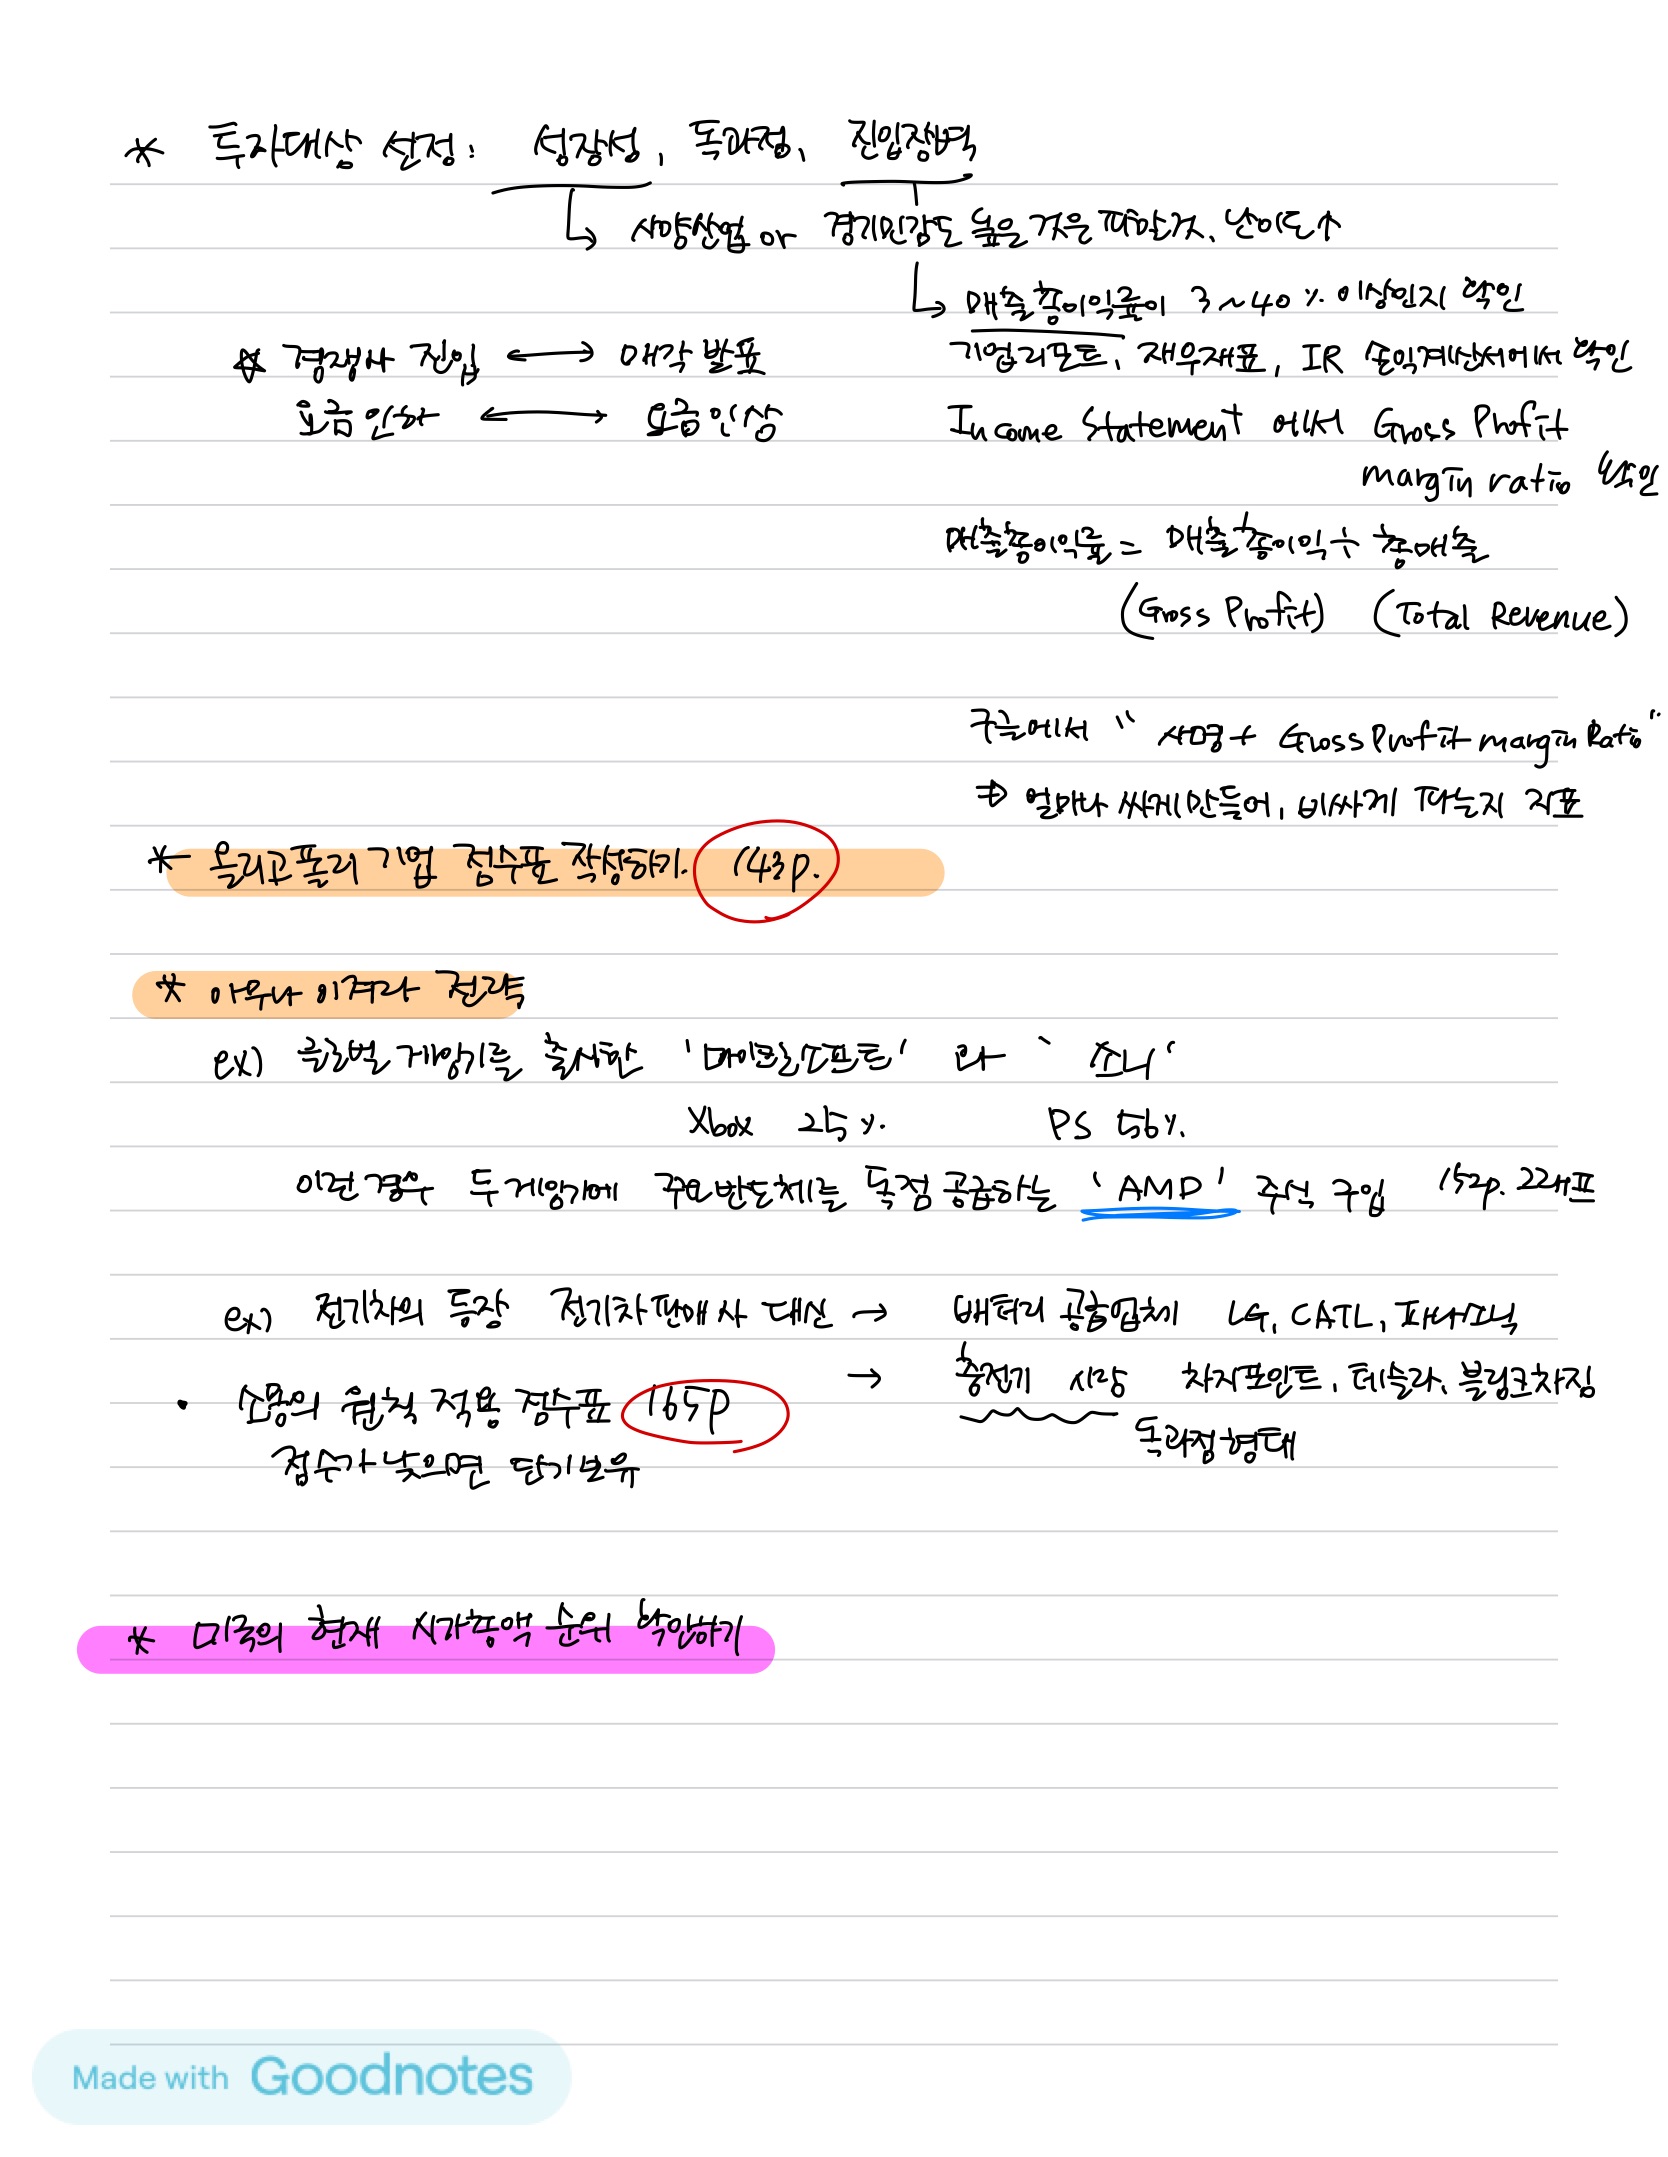 * 투자대상 선정: 성장성, 독과점, 진입장벽
↳ 사양산업 or 경기민감도 높은 것은 피할것, 난이도↑
↳ 매출총이익률이 3~40% 이상인지 확인
☆ 경쟁사 진입 ↔ 매각 발표
기업리포트, 재무재표, IR 손익계산서에서 확인
요금인하 ↔ 요금인상
Income Statement 에서 Gross Profit
margin ratio 확인
매출총이익률 = 매출총이익 ÷ 총매출
(Gross Profit) (Total Revenue)
구글에서 " 사명 + Gross Profit margin Ratio "
⇒ 얼마나 싸게 만들어, 비싸게 파는지 지표
* 올리고폴리 기업 점수표 작성하기. 143p.
* 아무나 이겨라 전략
ex) 글로벌 게임기를 출시한 '마이크로소프트' 와 ' 소니 '
Xbox 25% PS 56%
이런 경우 두 게임기에 주요반도체를 독점 공급하는 'AMD' 주식 구입 152p. 22그래프
ex) 전기차의 등장 전기차 판매사 대신 → 배터리 공급업체 LG, CATL, 파나소닉
→ 충전기 시장 차지포인트, 테슬라, 블링크차징
• 소몽의 원칙 적용 점수표 165p
독과점 형태
점수가 낮으면 단기보유
* 미국의 현재 시가총액 순위 확인하기
Made with Goodnotes